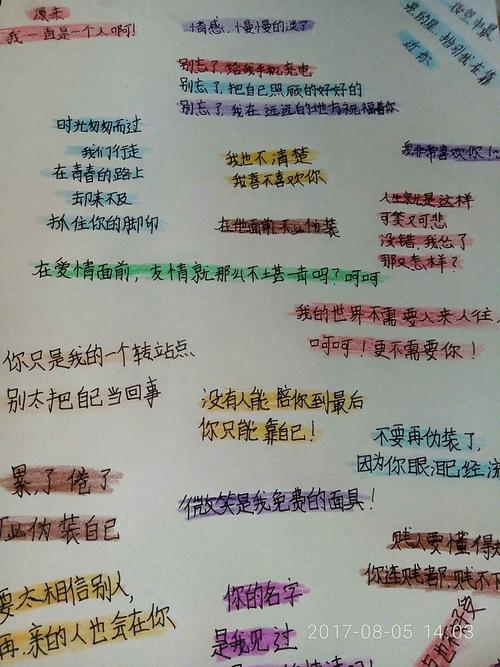 原来
我一直是一个人啊!
情感,慢慢的淡了
仰望中最
近你
别忘了,给我手机充电
别忘了,把自己照顾的好好的
别忘了,我在远远的地方祝福着你
时光匆匆而过
我们行走
在青春的路上
却来不及
抓住你的脚印
我也不清楚
我喜不喜欢你
我非常喜欢你!
在他面前,不必伪装
人生就是这样
可笑又可悲
没错,我怂了
那又怎样?
在爱情面前,友情就那么不堪一击吗?呵呵
我的世界不需要人来人往,
呵呵!更不需要你!
你只是我的一个转站点
别太把自己当回事
没有人能陪你到最后
你只能靠自己!
不要再伪装了,
因为你眼泪已经
累了倦了
必伪装自己
微笑是我免费的面具!
贱人要懂得
你连贱都贱不
要太相信别人,
再亲的人也会在你
你的名字
是我见过
2017-08-05 14:03